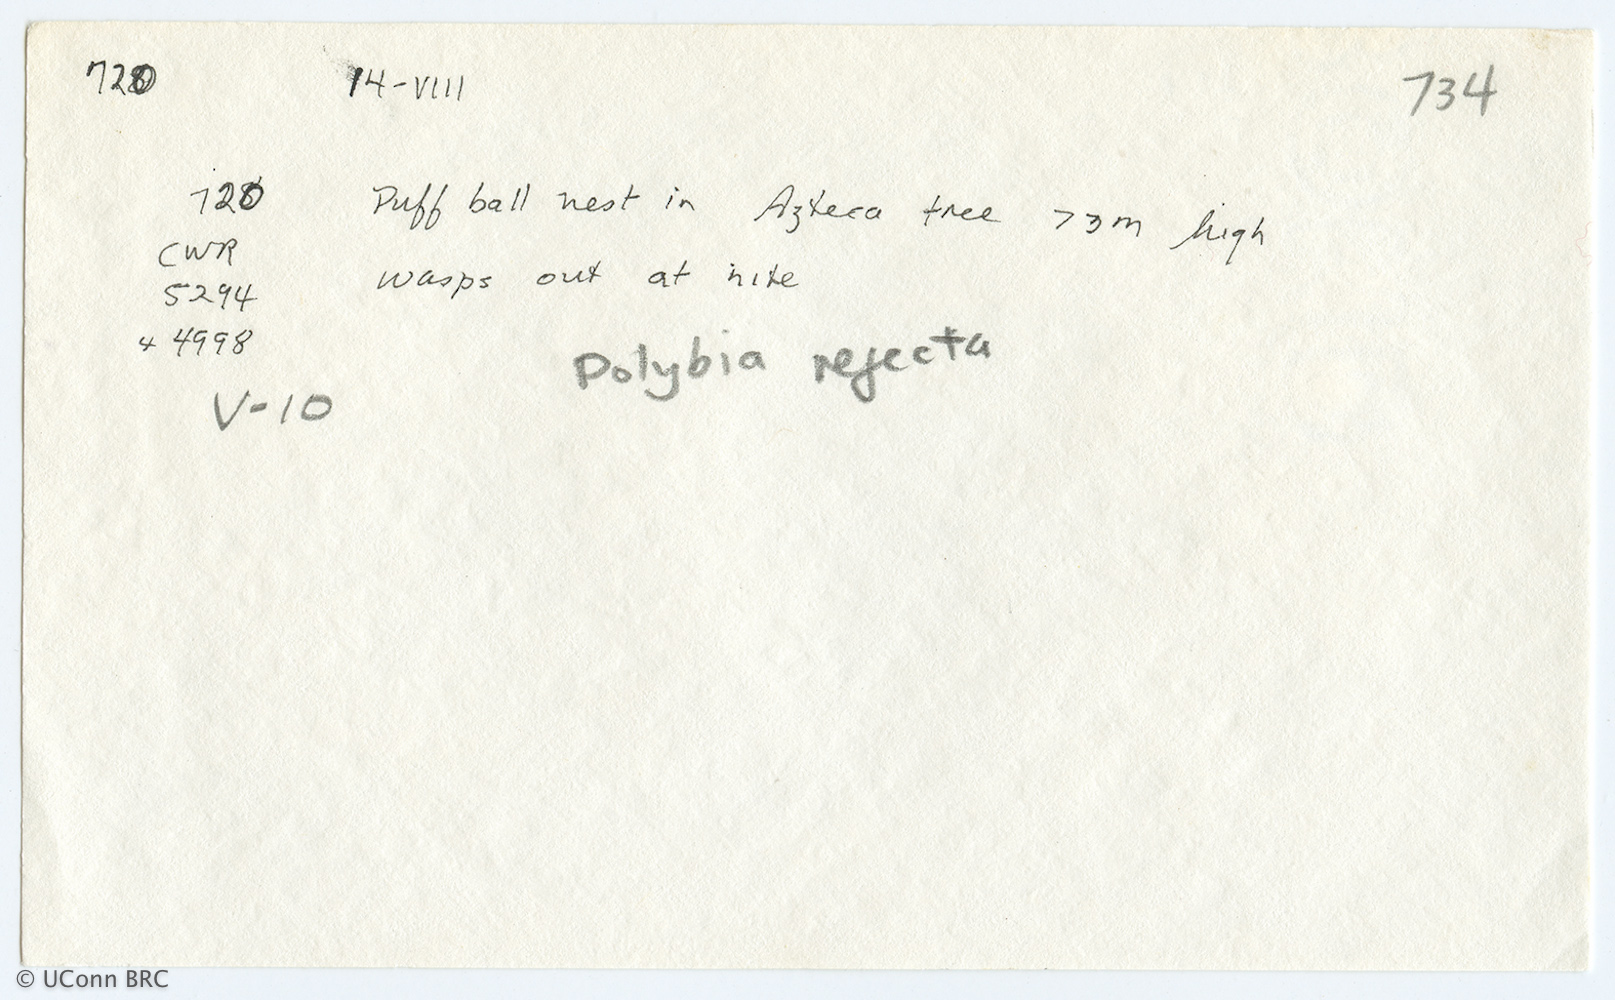 720 14-VIII 734
720 Puff ball nest in Azteca tree >3m high
CWR wasps out at nite
5294
+ 4998 Polybia rejecta
V-10
© UConn BRC